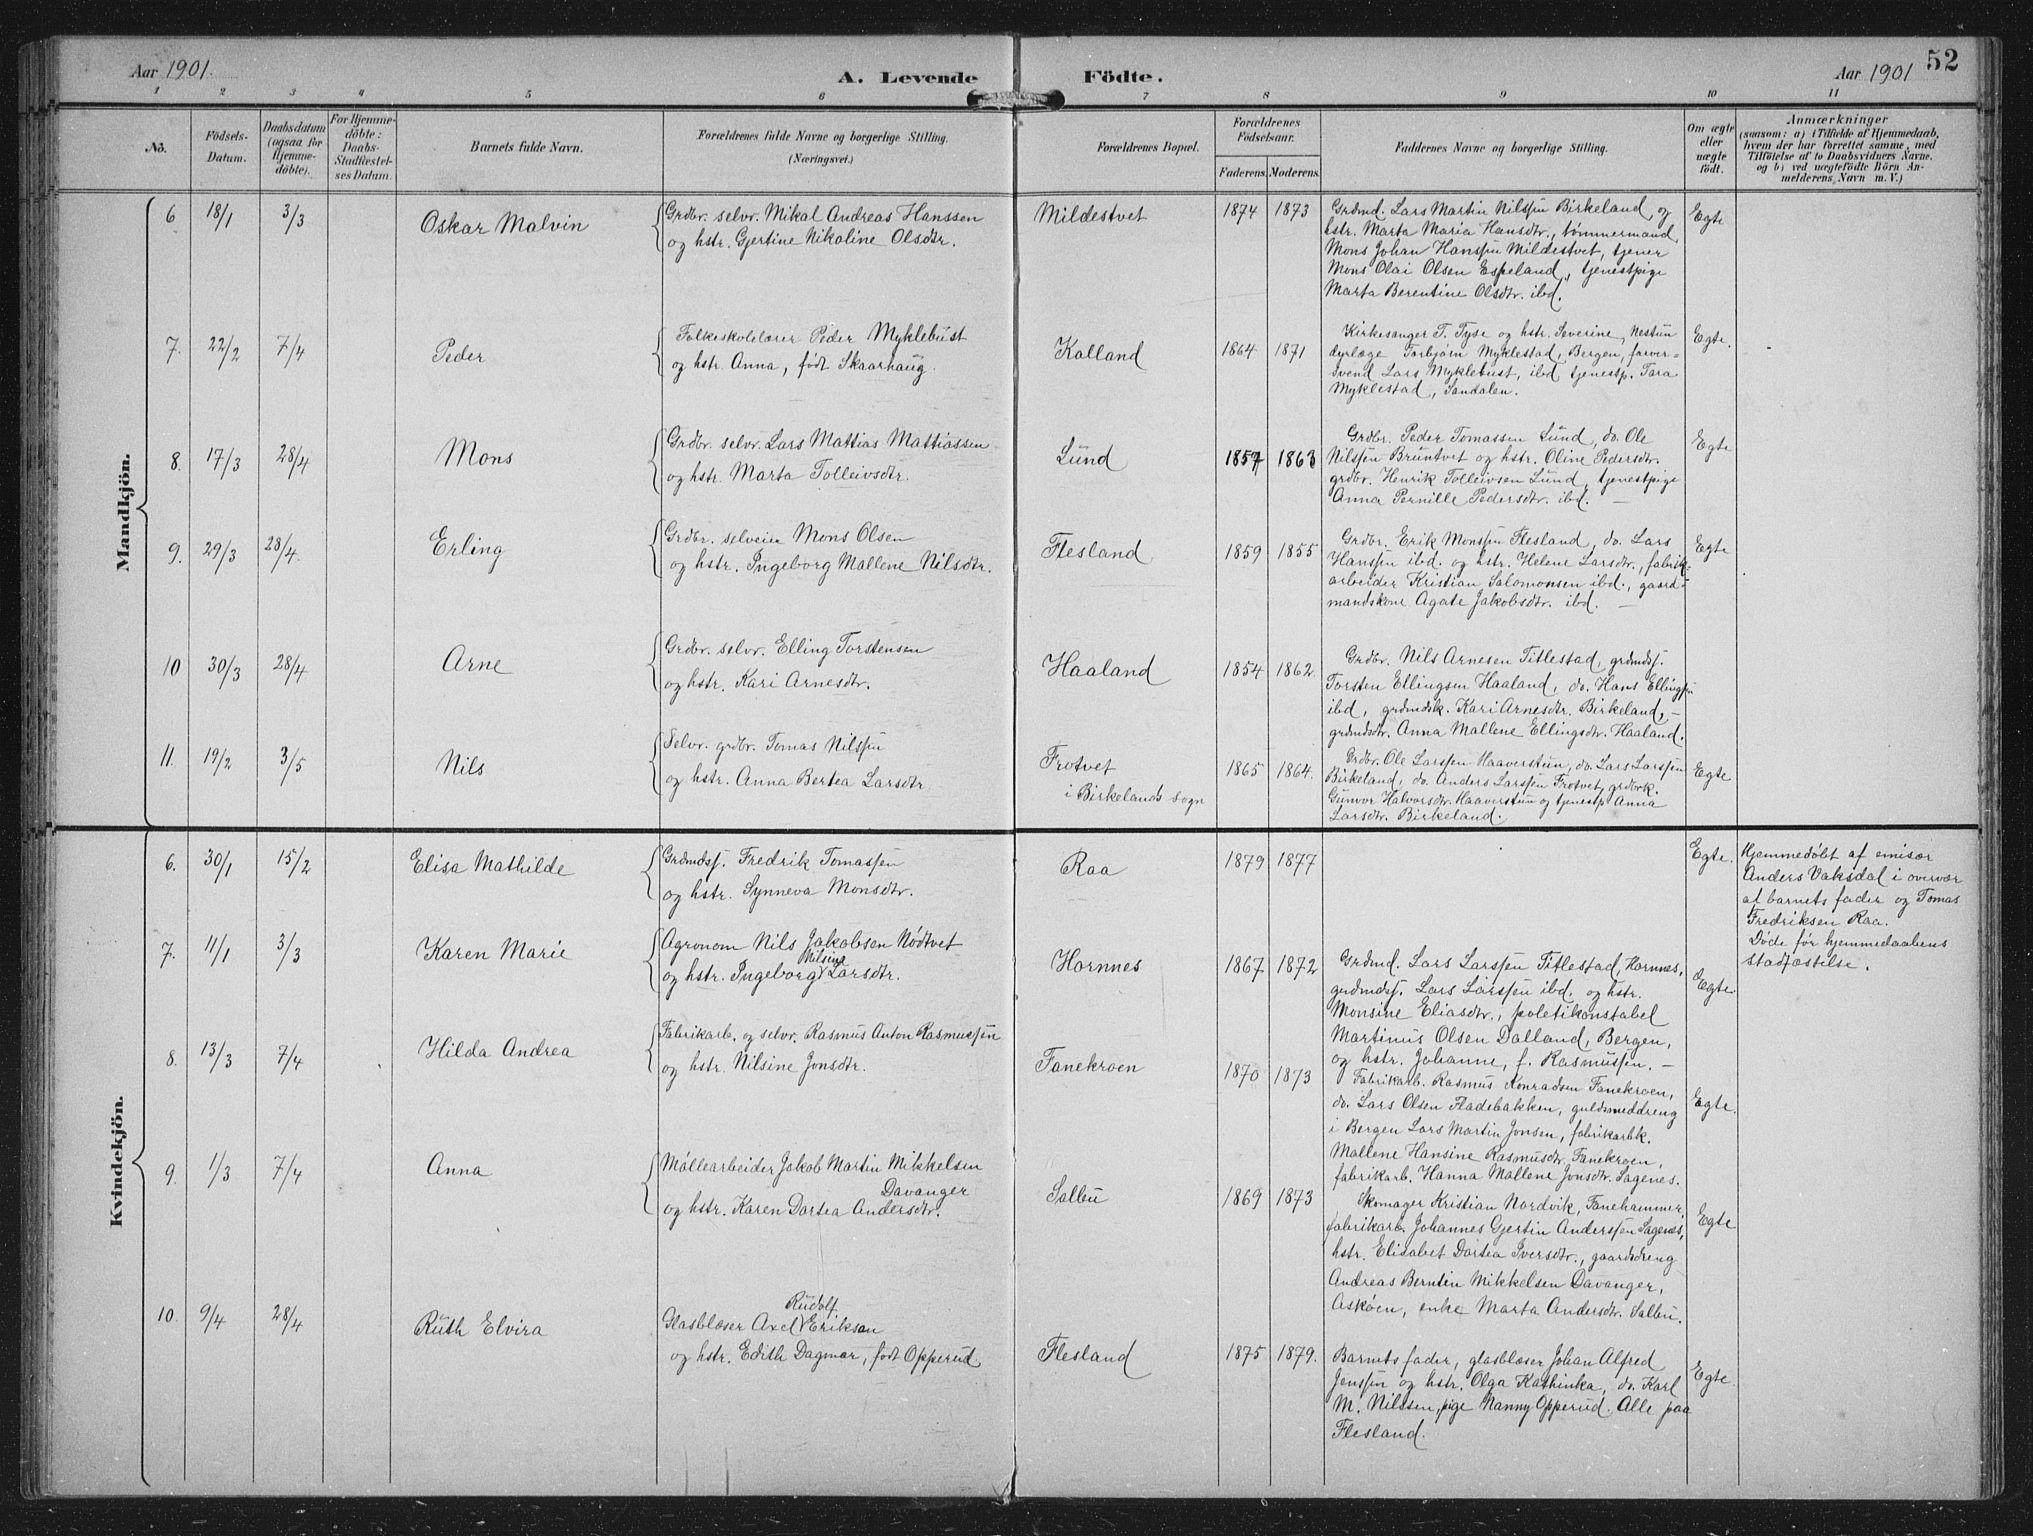 Aar 1901.
A. Levende Födte.
Aar 1901
52
1 2 3 4 5 6 7 8 9 10 11
No.
Födsels-Datum.
Daabsdatum (ogsaa for Hjemme-döbte).
For Hjemme-döbte: Daabs-Stadfæstel-ses Datum.
Barnets fulde Navn.
Forældrenes fulde Navne og borgerlige Stilling.
(Næringsvei.)
Forældrenes Bopæl.
Forældrenes Födselsaar.
Faderens. Moderens.
Faddernes Navne og borgerlige Stilling.
Om ægte eller uægte födt.
Anmærkninger
(saasom: a) i Tilfælde af Hjemmedaab, hvem der har forrettet samme, med Tilföielse af to Daabsvidners Navne, og b) ved uægtefödte Börn An-melderens Navn m. V.)
Mandkjön.
6 18/1 3/3 Oskar Malvin
Grdbr. selvr. Mikal Andreas Hanssen
og hstr. Gjertine Nikoline Olsdtr.
Mildestvet 1874 1873
Grdmd. Lars Martin Nilssen Birkeland, og
hstr. Marta Maria Hansdtr., tømmermand
Mons Johan Hanssen Mildestvet, tjener
Mons Olai Olsen Espeland, tjenestpige
Marta Berentine Olsdtr. ibd.
Egte
7. 22/2 7/4 Peder
Folkeskolelærer Peder Myklebust
og hstr. Anna, født Skaarhaug.
Kalland 1864 1871
Kirkesanger T. Tyse og hstr. Severine, Nestun
dyrlæge Torbjørn Myklestad, Bergen, farver-
svend Lars Myklebust, ibd tjenestp. Tara
Myklestad, Sandalen.
Egte.
8. 17/3 28/4 Mons
Grdbr. selvr. Lars Mattias Mattiassen
og hstr. Marta Tolleivsdtr.
Lund 1857 1863
Grdbr. Peder Tomassen Lund, do. Ole
Nilssen Bruntvet og hstr. Oline Pedersdtr.
grdbr. Henrik Tolleivsen Lund, tjenestpige
Anna Pernille Pedersdtr. ibd. —
Egte
9. 29/3 28/4. Erling
Grdbr. selveier Mons Olsen
og hstr. Ingeborg Mallene Nilsdtr.
Flesland 1859 1855
Grdbr. Erik Monssen Flesland, do. Lars
Hanssen ibd. og hstr. Helene Larsdtr., fabrik-
arbeider Kristian Salomonsen ibd., gaard-
mandskone Agate Jakobsdtr. ibd. —
Egte
10 30/3 28/4 Arne
Grdbr. selvr. Elling Torstensen
og hstr. Kari Arnesdtr.
Haaland 1854 1862.
Grdbr. Nils Arnesen Titlestad, grdmdss.
Torsten Ellingsen Haaland, do. Hans Ellingsen
ibd, grdmdsk. Kari Arnesdtr. Birkeland, —
grdmdsdtr. Anna Mallene Ellingsdtr. Haaland.
11. 19/2 3/5 Nils
Selvr. grdbr. Tomas Nilssen
og hstr. Anna Bertea Larsdtr
Frotvet
i Birkelands sogn
1865 1864.
Grdbr. Ole Larssen Haaverstun, do. Lars Larssen
Birkeland, do. Anders Larssen Frotvet, grdbrk.
Gunvor Halvorsdtr. Haaverstun og tjenestp Anna
Larsdtr. Birkeland.
Egte
Kvindekjön.
6. 30/1 15/2 Elisa Mathilde
Grdmdss. Fredrik Tomassen
og hstr. Synneva Monsdtr.
Raa 1879 1877
Egte.
Hjemmedøbt af emisær
Anders Vaksdal i overvær
af barnets fader og Tomas
Fredriksen Raa.
Døde før hjemmedaabens
stadfæstelse.
7. 11/1 3/3 Karen Marie
Agronom Nils Jakobsen Nødtvet
Nilsine
og hstr. Ingeborg Larsdtr.
Hornnes 1867 1872
Grdmd. Lars Larssen Titlestad, Hornnes,
grdmdss. Lars Larssen ibd. og hstr.
Monsine Eliasdtr., politikonstabel
Martinus Olsen Dalland, Bergen,
og hstr. Johanne, f. Rasmussen. —
Egte.
8. 13/3 7/4 Hilda Andrea
Fabrikarb. og selvr. Rasmus Anton Rasmussen
og hstr. Nilsine Jonsdtr.
Fanekroen 1870 1873
Fabrikarb. Rasmus Konradsen Fanekroen,
do. Lars Olsen Fladebakken, guldsmeddreng
i Bergen Lars Martin Jonsen, fabrikarbk.
Mallene Hansine Rasmusdtr. Fanekroen,
fabrikarb. Hanna Mallene Jonsdtr. Sagenes.
Egte.
9. 1/3 7/4 Anna
Møllearbeider Jakob Martin Mikkelsen
Davanger
og hstr. Karen Dortea Andersdtr.
Salbu 1869 1873
Skomager Kristian Nordvik, Fanehammer,
fabrikarb. Johannes Gjertin Anderssen Sagenes,
hstr. Elisabet Dortea Iversdtr., gaardsdreng
Andreas Berntin Mikkelsen Davanger,
Askøen, enke Marta Andersdtr. Salbu.
Egte
10. 9/4 28/4 Ruth Elvira
Rudolf
Glasblæser Axel Erikson
og hstr. Edith Dagmar, født Opperud
Flesland 1875 1879.
Barnets fader, glasblæser Johan Alfred
Jenssen og hstr. Olga Kathinka, do. Karl
M. Nilssen, pige Nanny Opperud. Alle paa
Flesland.
Egte.